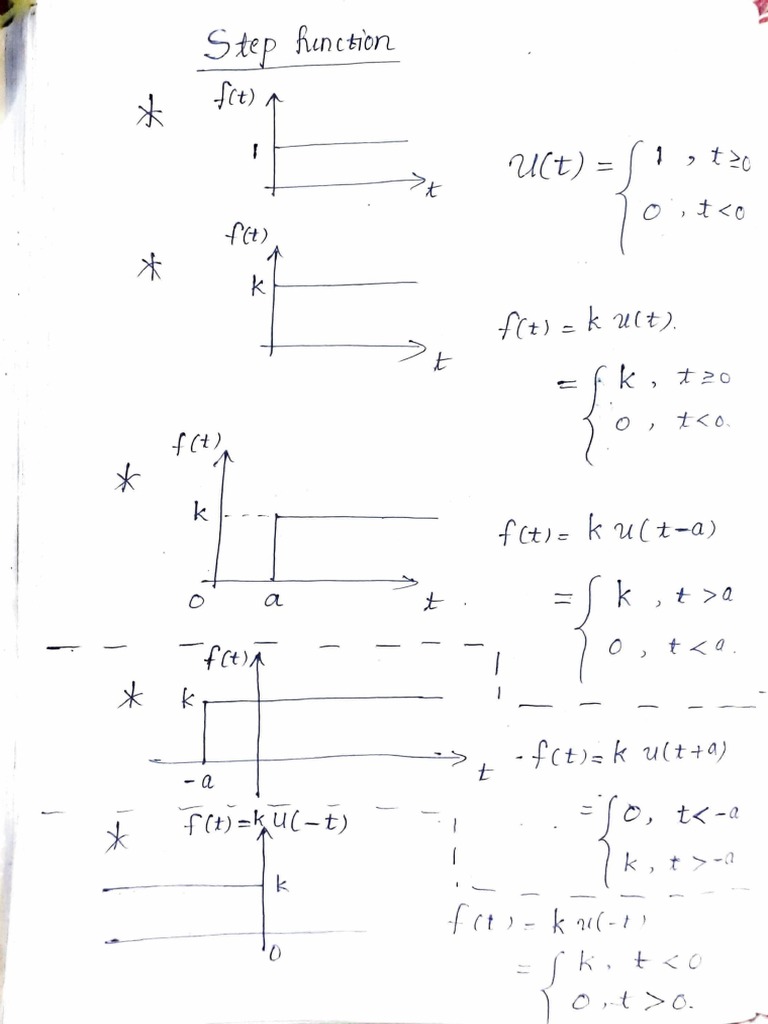 Step function
*
f(t)
1
t
u(t) = { 1 , t≥0
0 , t<0
*
f(t)
k
t
f(t) = k u(t).
= { k , t≥0
0 , t<0.
*
f(t)
k
0 a t.
f(t) = k u(t-a)
= { k , t>a
0 , t<a.
*
f(t)
k
-a
t
-f(t) = k u(t+a)
= { 0, t<-a
k, t>-a
*
f(t)=k u(-t)
k
0
f(t) = k u(-t)
= { k, t<0
0, t>0.